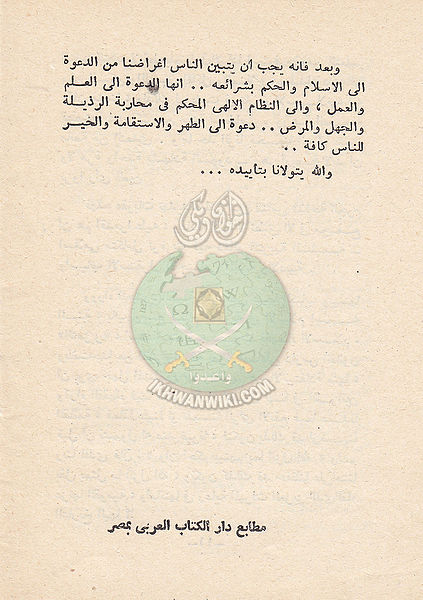 وبعد فانه يجب ان يتبين الناس اغراضنا من الدعوة
الى الاسلام والحكم بشرائعه .. انها الدعوة الى العلم
والعمل ، والى النظام الالهى المحكم فى محاربة الرذيلة
والجهل والمرض .. دعوة الى الطهر والاستقامة والخير
للناس كافة ..
والله يتولانا بتأييده ...
إخوان ويكي
W
Ω
واعدوا
IKHWANWIKI.COM
مطابع دار الكتاب العربى بمصر